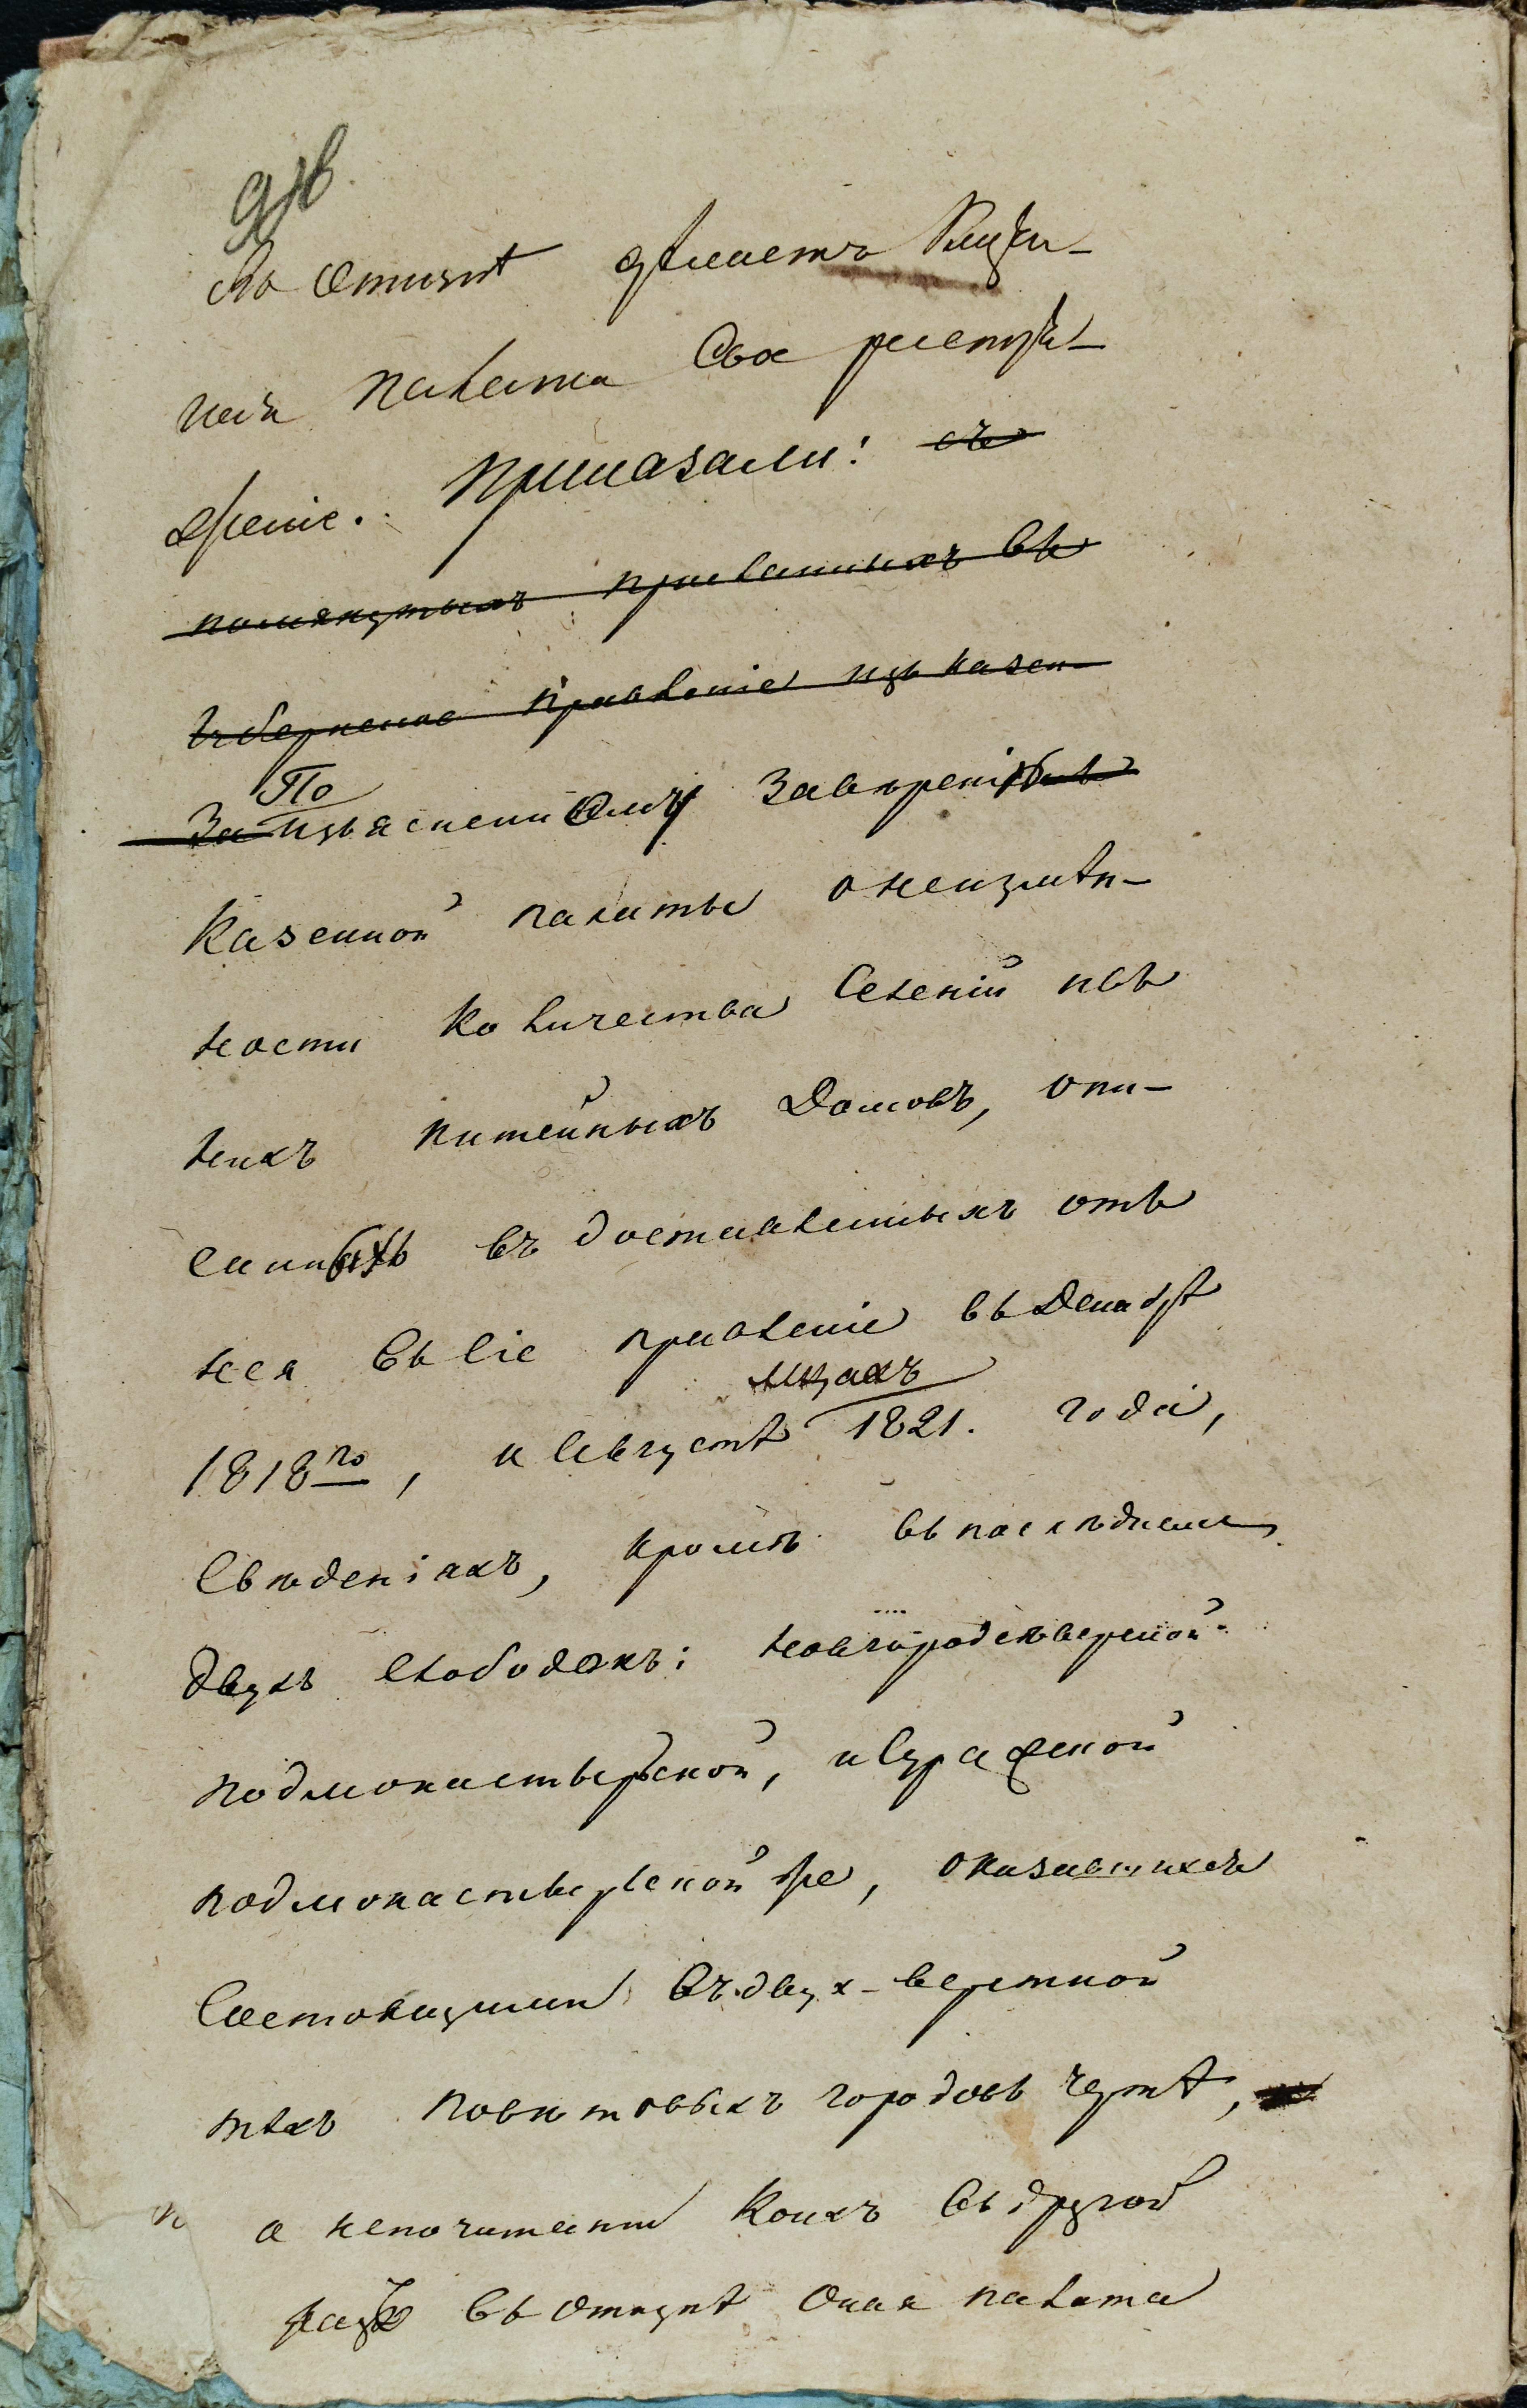 въ откупъ дѣлаетъ Казен-
ная палата свое распоря-
женіе. Приказали: съ
помянутыхъ присланныхъ въ
Губернское Правленіе изъ казен-
По
За изъясненному завѣренію
Казенной палаты о неизмѣн-
ности количества селеній и въ
нихъ питейныхъ домовъ, опи-
санныхъ въ доставленныхъ отъ
нея въ сіе правленіе въ Декабрѣ
мцахъ
1818го, и Августѣ 1821. года,
свѣденіяхъ, кромѣ въ последнемъ
двухъ слободокъ: Новгородсѣверской
подмонастырской, и Суражской
подмонастырской же, оказавшихся
состоящими въ двух-верстной
тѣхъ повѣтовыхъ городовъ чертѣ,
а непочитаніи коихъ въ другой
разъ въ откупѣ оная палата